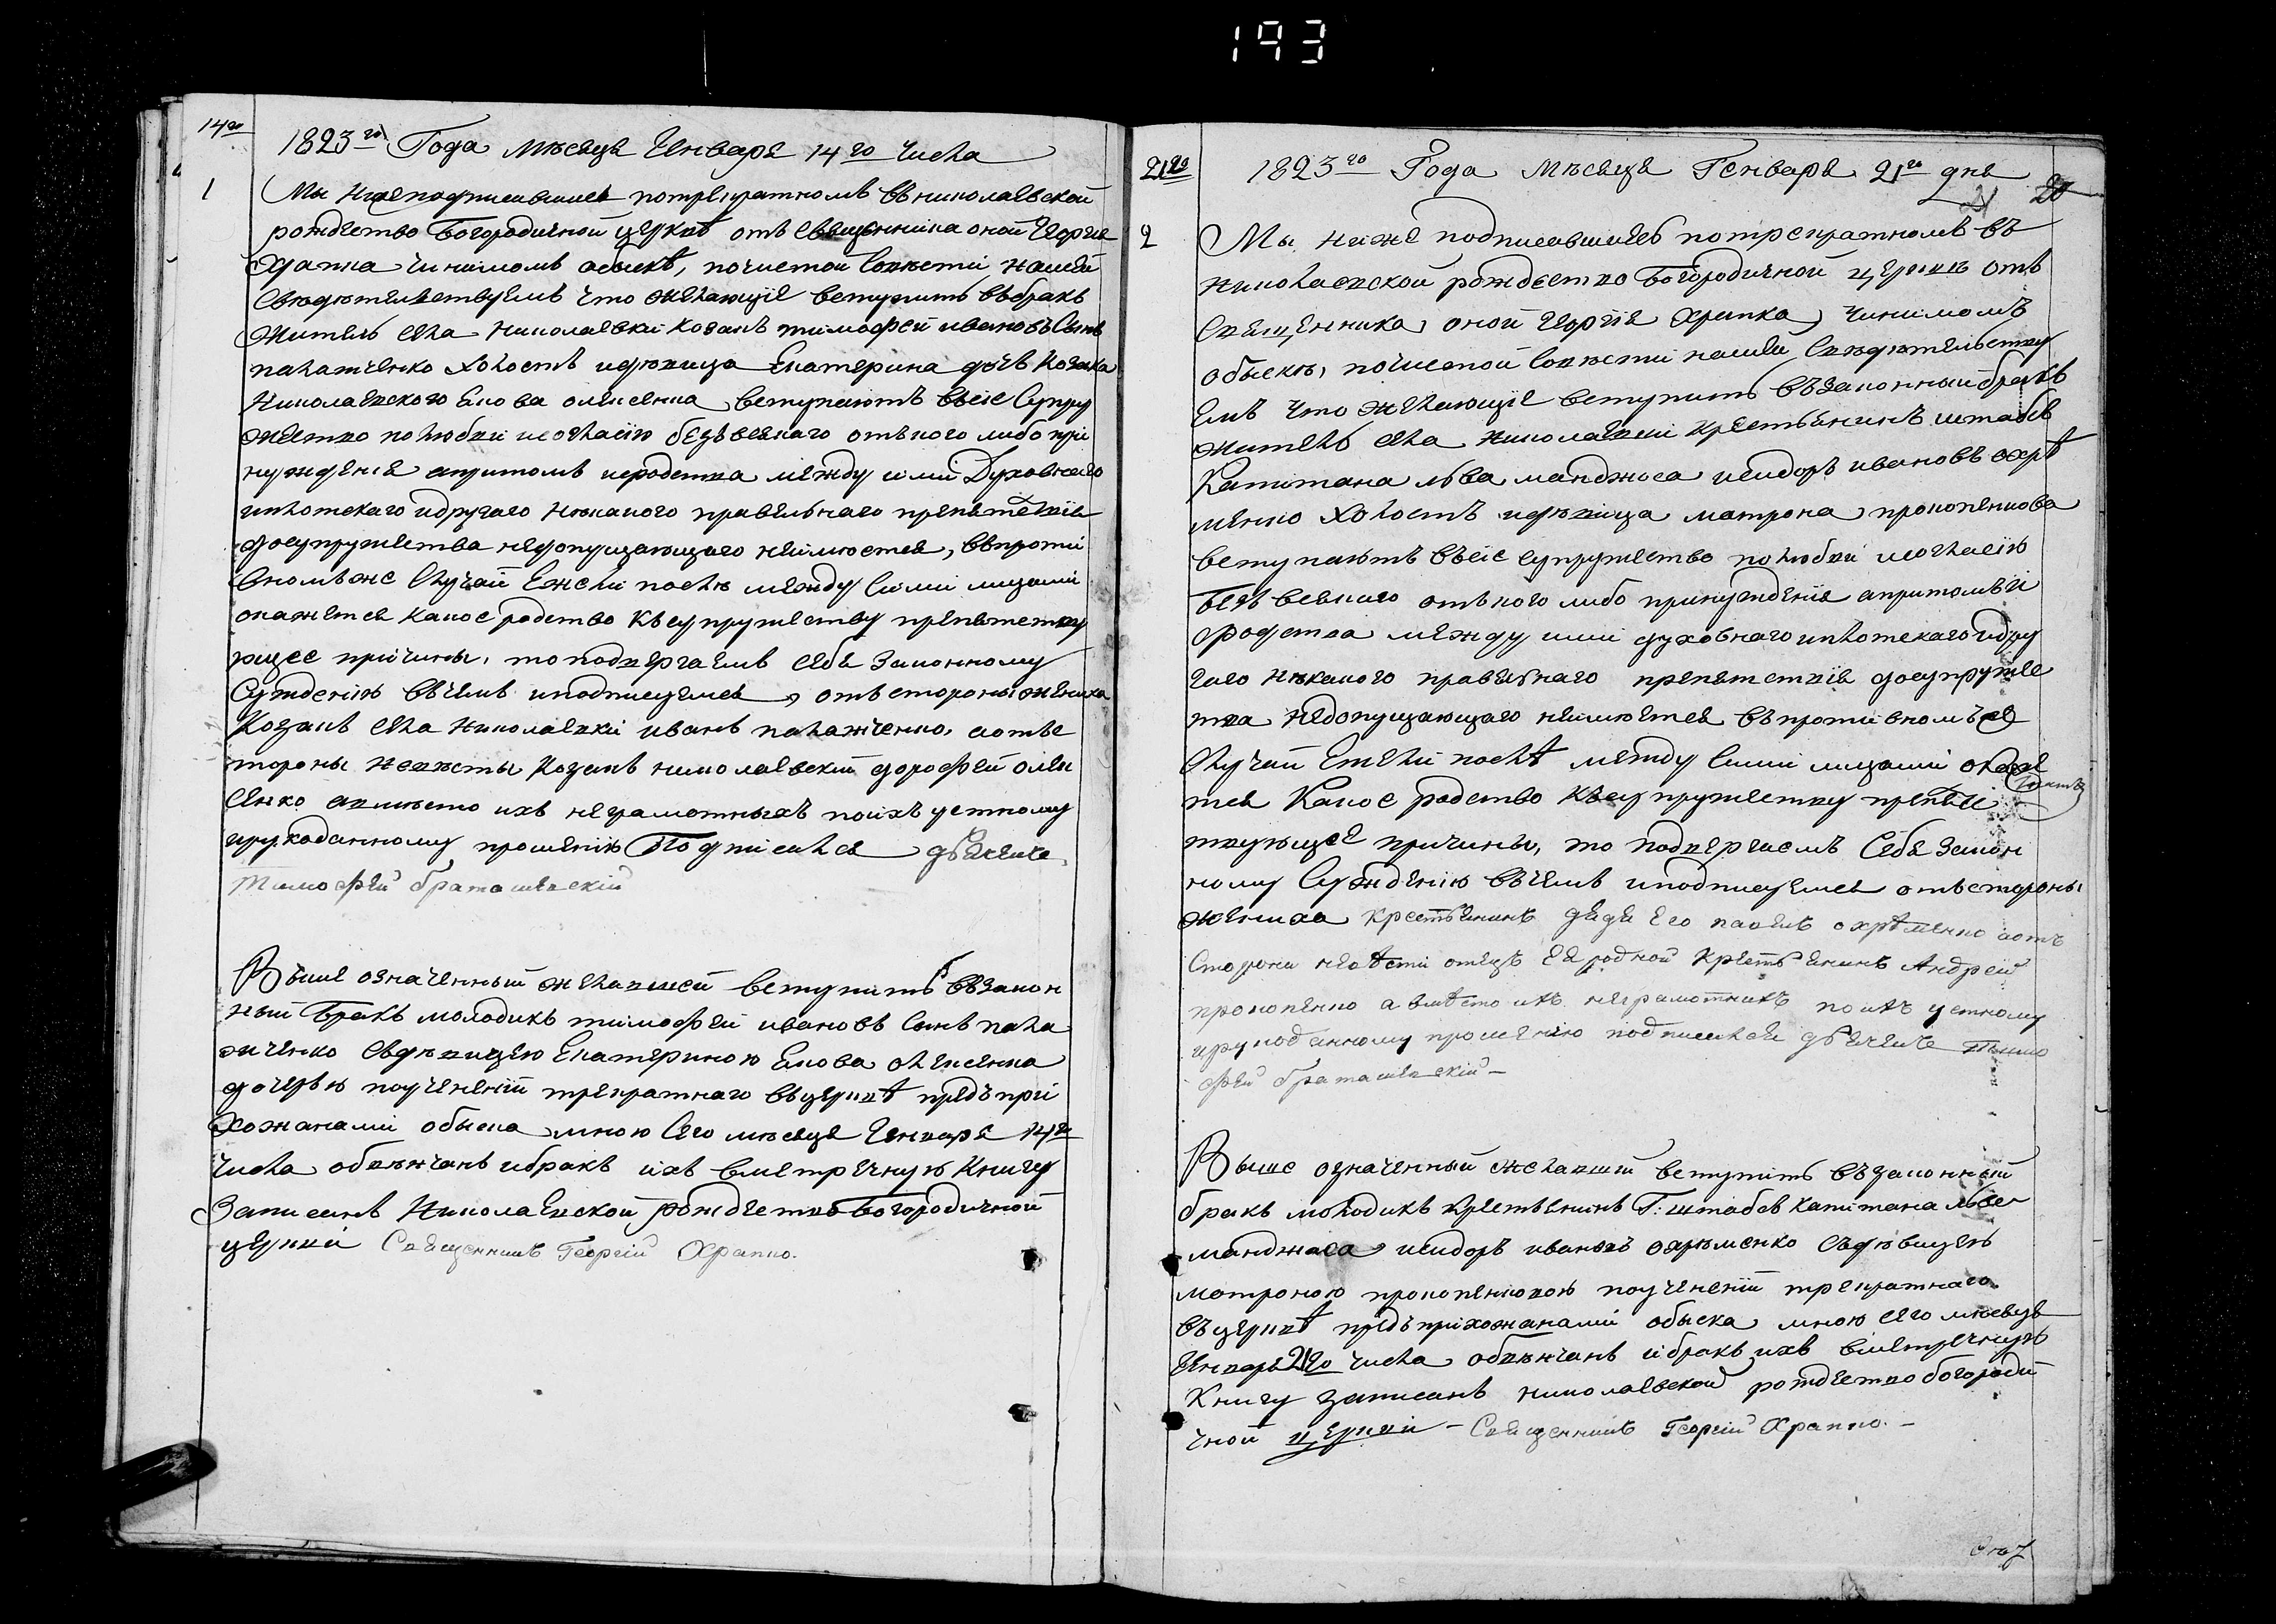 193
14го
1823го Года Мѣсяца Генваря 14го Числа
1
Мы нижеподписавшиеся потрекратномъ въ николаевской
рождество Богородичной церкве отъ священника оной Георгия
Храпка чинимомъ обыскѣ, почистой совѣсти нашей
Свѣдѣтелствуемъ что желающіе вступить въ бракъ
Житель села Николаевки Козакъ тимофей ивановъ сынъ
палатченко холостъ идѣвица Екатерина дочь козака
Николаевского олексенка вступаютъ въсіе Супру
жество полюбви исогласію безъ всякаго отъ кого либо при
нужденія апритомъ иродства между ими Духовнаго
иплотскаго идругаго нѣкакого правелънаго препятствія
досупружества недопущающаго неимѣется, въпроти
вномъже случай Ежели послѣ между сими лицами
окажется какое родство къ супружеству препятству
ющее причины, то подвергаемъ себя Законному
Сужденію въчемъ иподписуемся, отъ стороны жениха
Козакъ села Николаевки иванъ палатченко, аотъс
тороны невѣсты Козакъ николаевский дорофей олек
сенко авмѣсто ихъ неграмотныхъ поихъ устному
ирукоданному прошенію Подписался дьячекъ
Тимофей браташевскій
Выше означенный желавшей вступить взакон
ный Бракъ молодикъ тимофей ивановъ сынъ пала
тченко сдѣвицею Екатериною олексенка
дочерью поученеій трекратнаго въцерквѣ предъ при
хожанами обыска мною сего мѣсяца Генваря 14го
Числа обвѣнчанъ ибракъ ихъ вметречную Книгу
Записанъ Николаевской рождество Богородичной
церкви Священникъ Георгій Храпко.
21го
1823го Года Мѣсяца Генваря 21го дня
21 20
2
Мы ниже подписавшиесь потрекратномъ въ
николаевской рождество Богородичной церквѣ отъ
Священника оной Георгія Храпка чинимомъ
обыскѣ, почистой совѣсти нашей Свѣдѣтельству
емъ что желающіе вступить въ законный бракъ
житель села николаевки крестьянинъ штабсъ
Капитана льва манджоса исидоръ ивановъ охрѣ
менко холостъ идѣвица матрона прокопенкова
вступаютъ въсіе супружество полюбви исогласію
безъ всякаго отъ кого либо принужденія апритомъ и
родства между ими духовнаго иплотскаго идру
гаго нѣкакого правелънаго препятствія досупруже
тва недопущающаго неимѣется въпротивномъже
случай Ежели послѣ между сими лицами окаже
тся какое родство къ супружеству препятс
твующее причины, то подвергаемъ себя закон
ному Сужденію въчемъ иподписуемся отъ стороны
жениха крестьянинъ дядя его павелъ охрѣменко аотъ
Стороны невѣсти отецъ ея родной крестьянинъ Андрей
прокопенко авмѣсто ихъ неграмотнихъ поихъ устному
ирукоданному прошенію подписался дьячекъ Тимо
фей браташевскій –
Выше означенный желавший вступить въ законный
бракъ молодикъ крестьянинъ Г: штабсъ капитана льва
манджоса исидоръ ивановъ охрѣменко съдѣвицею
матроною прокопенковою поученеій трекратнаго
въцерквѣ предъ прихожанами обыска мною сего мѣсяца
Генваря 21го числа обвѣнчанъ ибракъ ихъ вметречную
Книгу записанъ николаевской рождество богороди
чной церкви – Священникъ Георгій Храпко. –